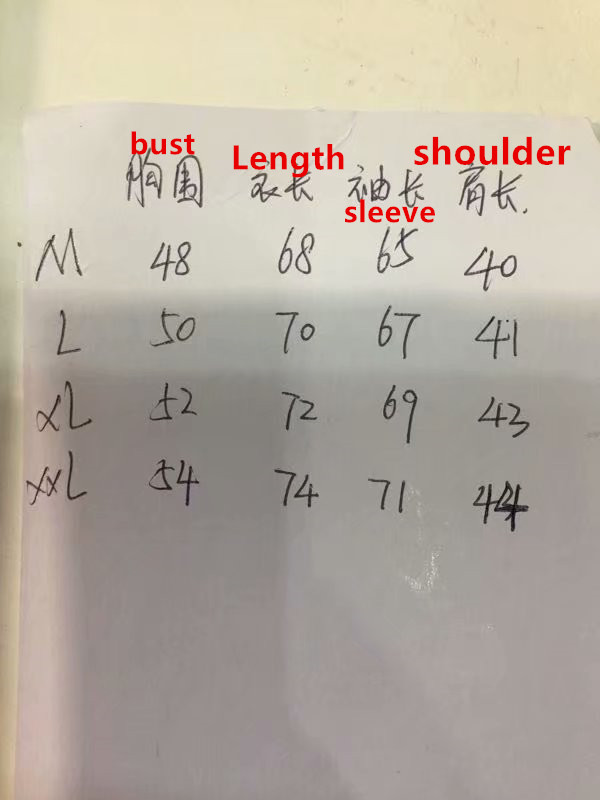 bust Length shoulder
胸围 衣长 袖长 肩长.
sleeve
M 48 68 65 40
L 50 70 67 41
XL 52 72 69 43
XXL 54 74 71 44